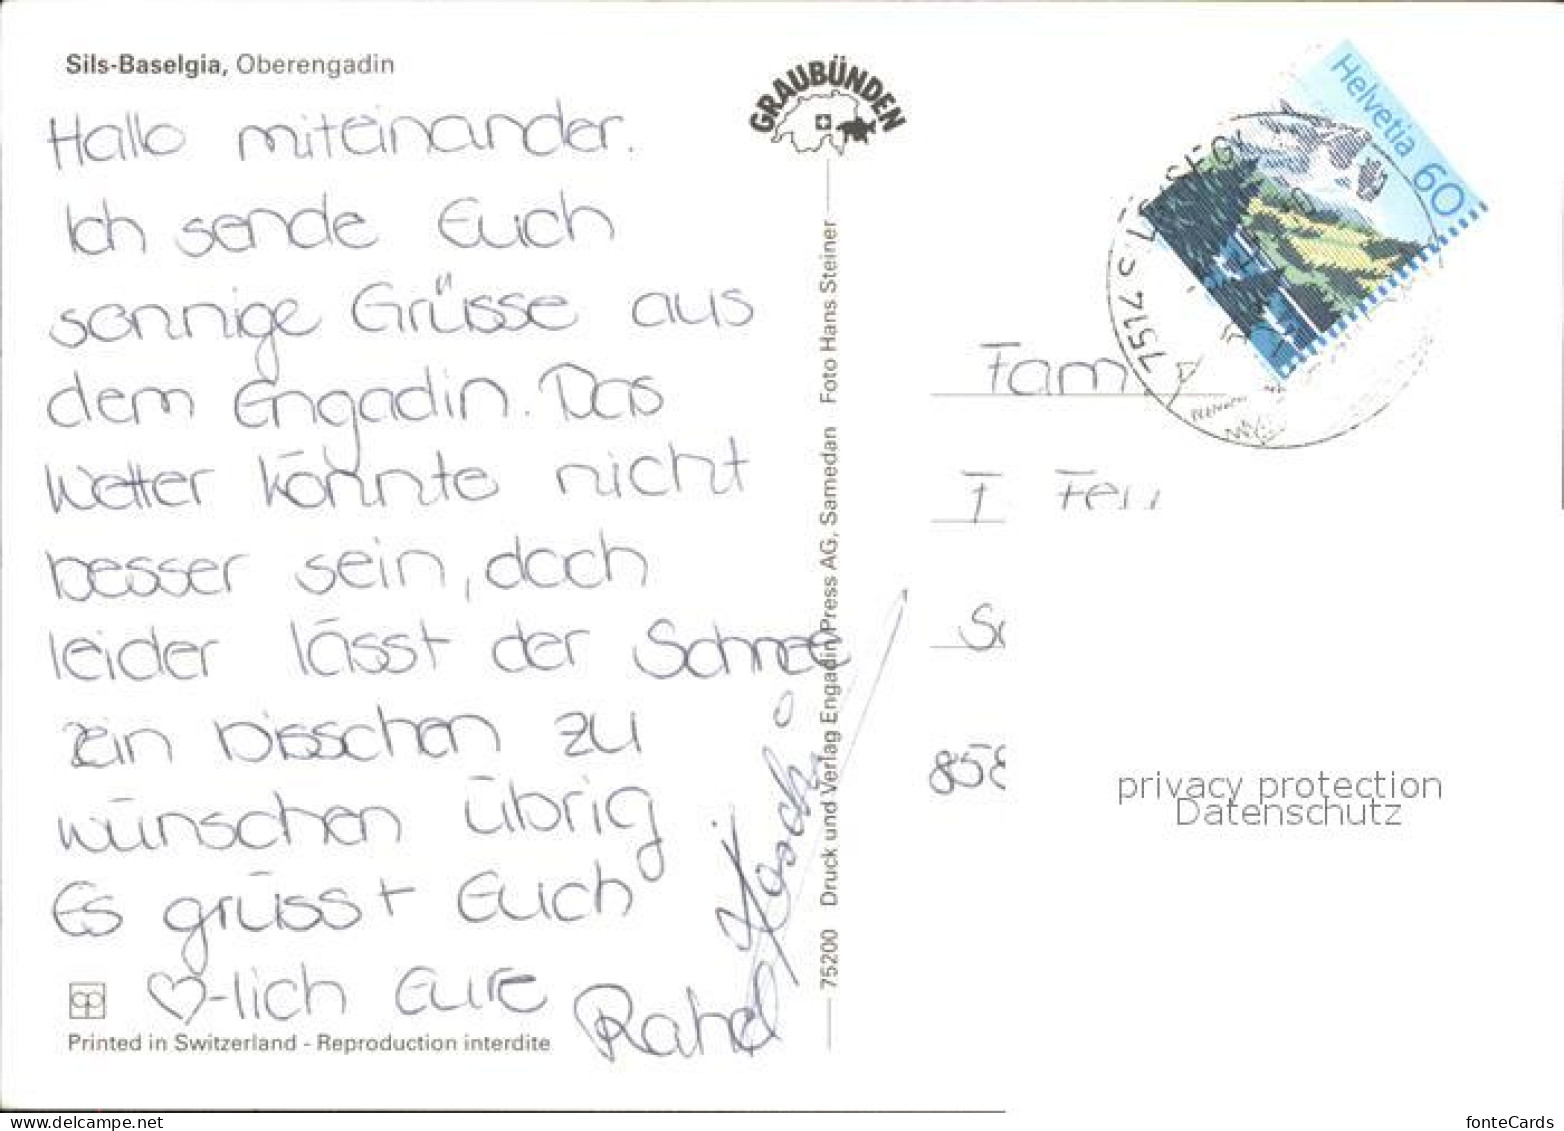 Sils-Baselgia, Oberengadin
Hallo miteinander.
Ich sende Euch
sonnige Grüsse aus
dem Engadin. Das
Wetter könnte nicht
besser sein, doch
leider lässt der Schnee
ein bisschen zu
wünschen übrig
Es grüsst Euch
♡-lich Eure
Rahel
Printed in Switzerland - Reproduction interdite
GRAUBÜNDEN
75200 Druck und Verlag Engadin Press AG, Samedan Foto Hans Steiner
Helvetia 60
Fam
858
privacy protection
Datenschutz
www.delcampe.net
fonteCards